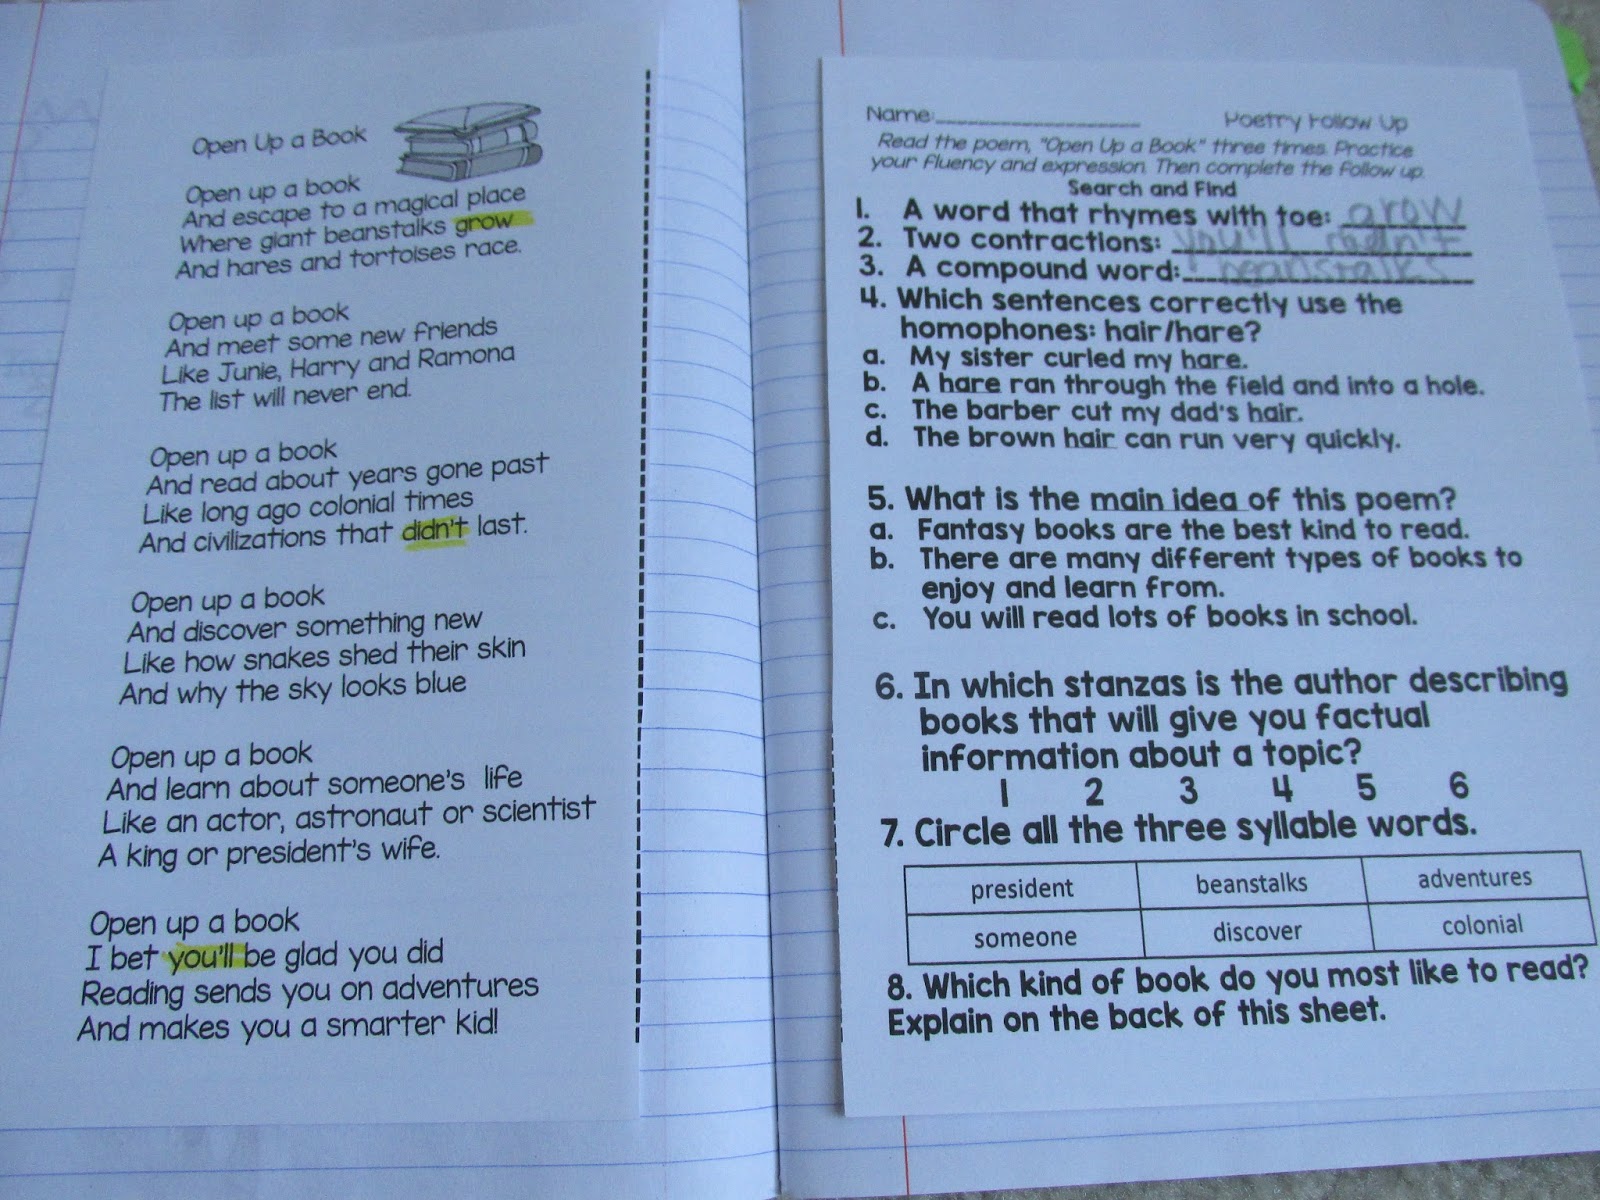 Open Up a Book
Open up a book
And escape to a magical place
Where giant beanstalks grow
And hares and tortoises race.
Open up a book
And meet some new friends
Like Junie, Harry and Ramona
The list will never end.
Open up a book
And read about years gone past
Like long ago colonial times
And civilizations that didn't last.
Open up a book
And discover something new
Like how snakes shed their skin
And why the sky looks blue
Open up a book
And learn about someone's life
Like an actor, astronaut or scientist
A king or president's wife.
Open up a book
I bet you'll be glad you did
Reading sends you on adventures
And makes you a smarter kid!
Name: Poetry Follow Up
Read the poem, "Open Up a Book" three times. Practice
your fluency and expression. Then complete the follow up.
Search and Find
1. A word that rhymes with toe: grow
2. Two contractions: you'll didn't
3. A compound word: beanstalks
4. Which sentences correctly use the
homophones: hair/hare?
a. My sister curled my hare.
b. A hare ran through the field and into a hole.
c. The barber cut my dad's hair.
d. The brown hair can run very quickly.
5. What is the main idea of this poem?
a. Fantasy books are the best kind to read.
b. There are many different types of books to
enjoy and learn from.
c. You will read lots of books in school.
6. In which stanzas is the author describing
books that will give you factual
information about a topic?
1 2 3 4 5 6
7. Circle all the three syllable words.
president beanstalks adventures
someone discover colonial
8. Which kind of book do you most like to read?
Explain on the back of this sheet.